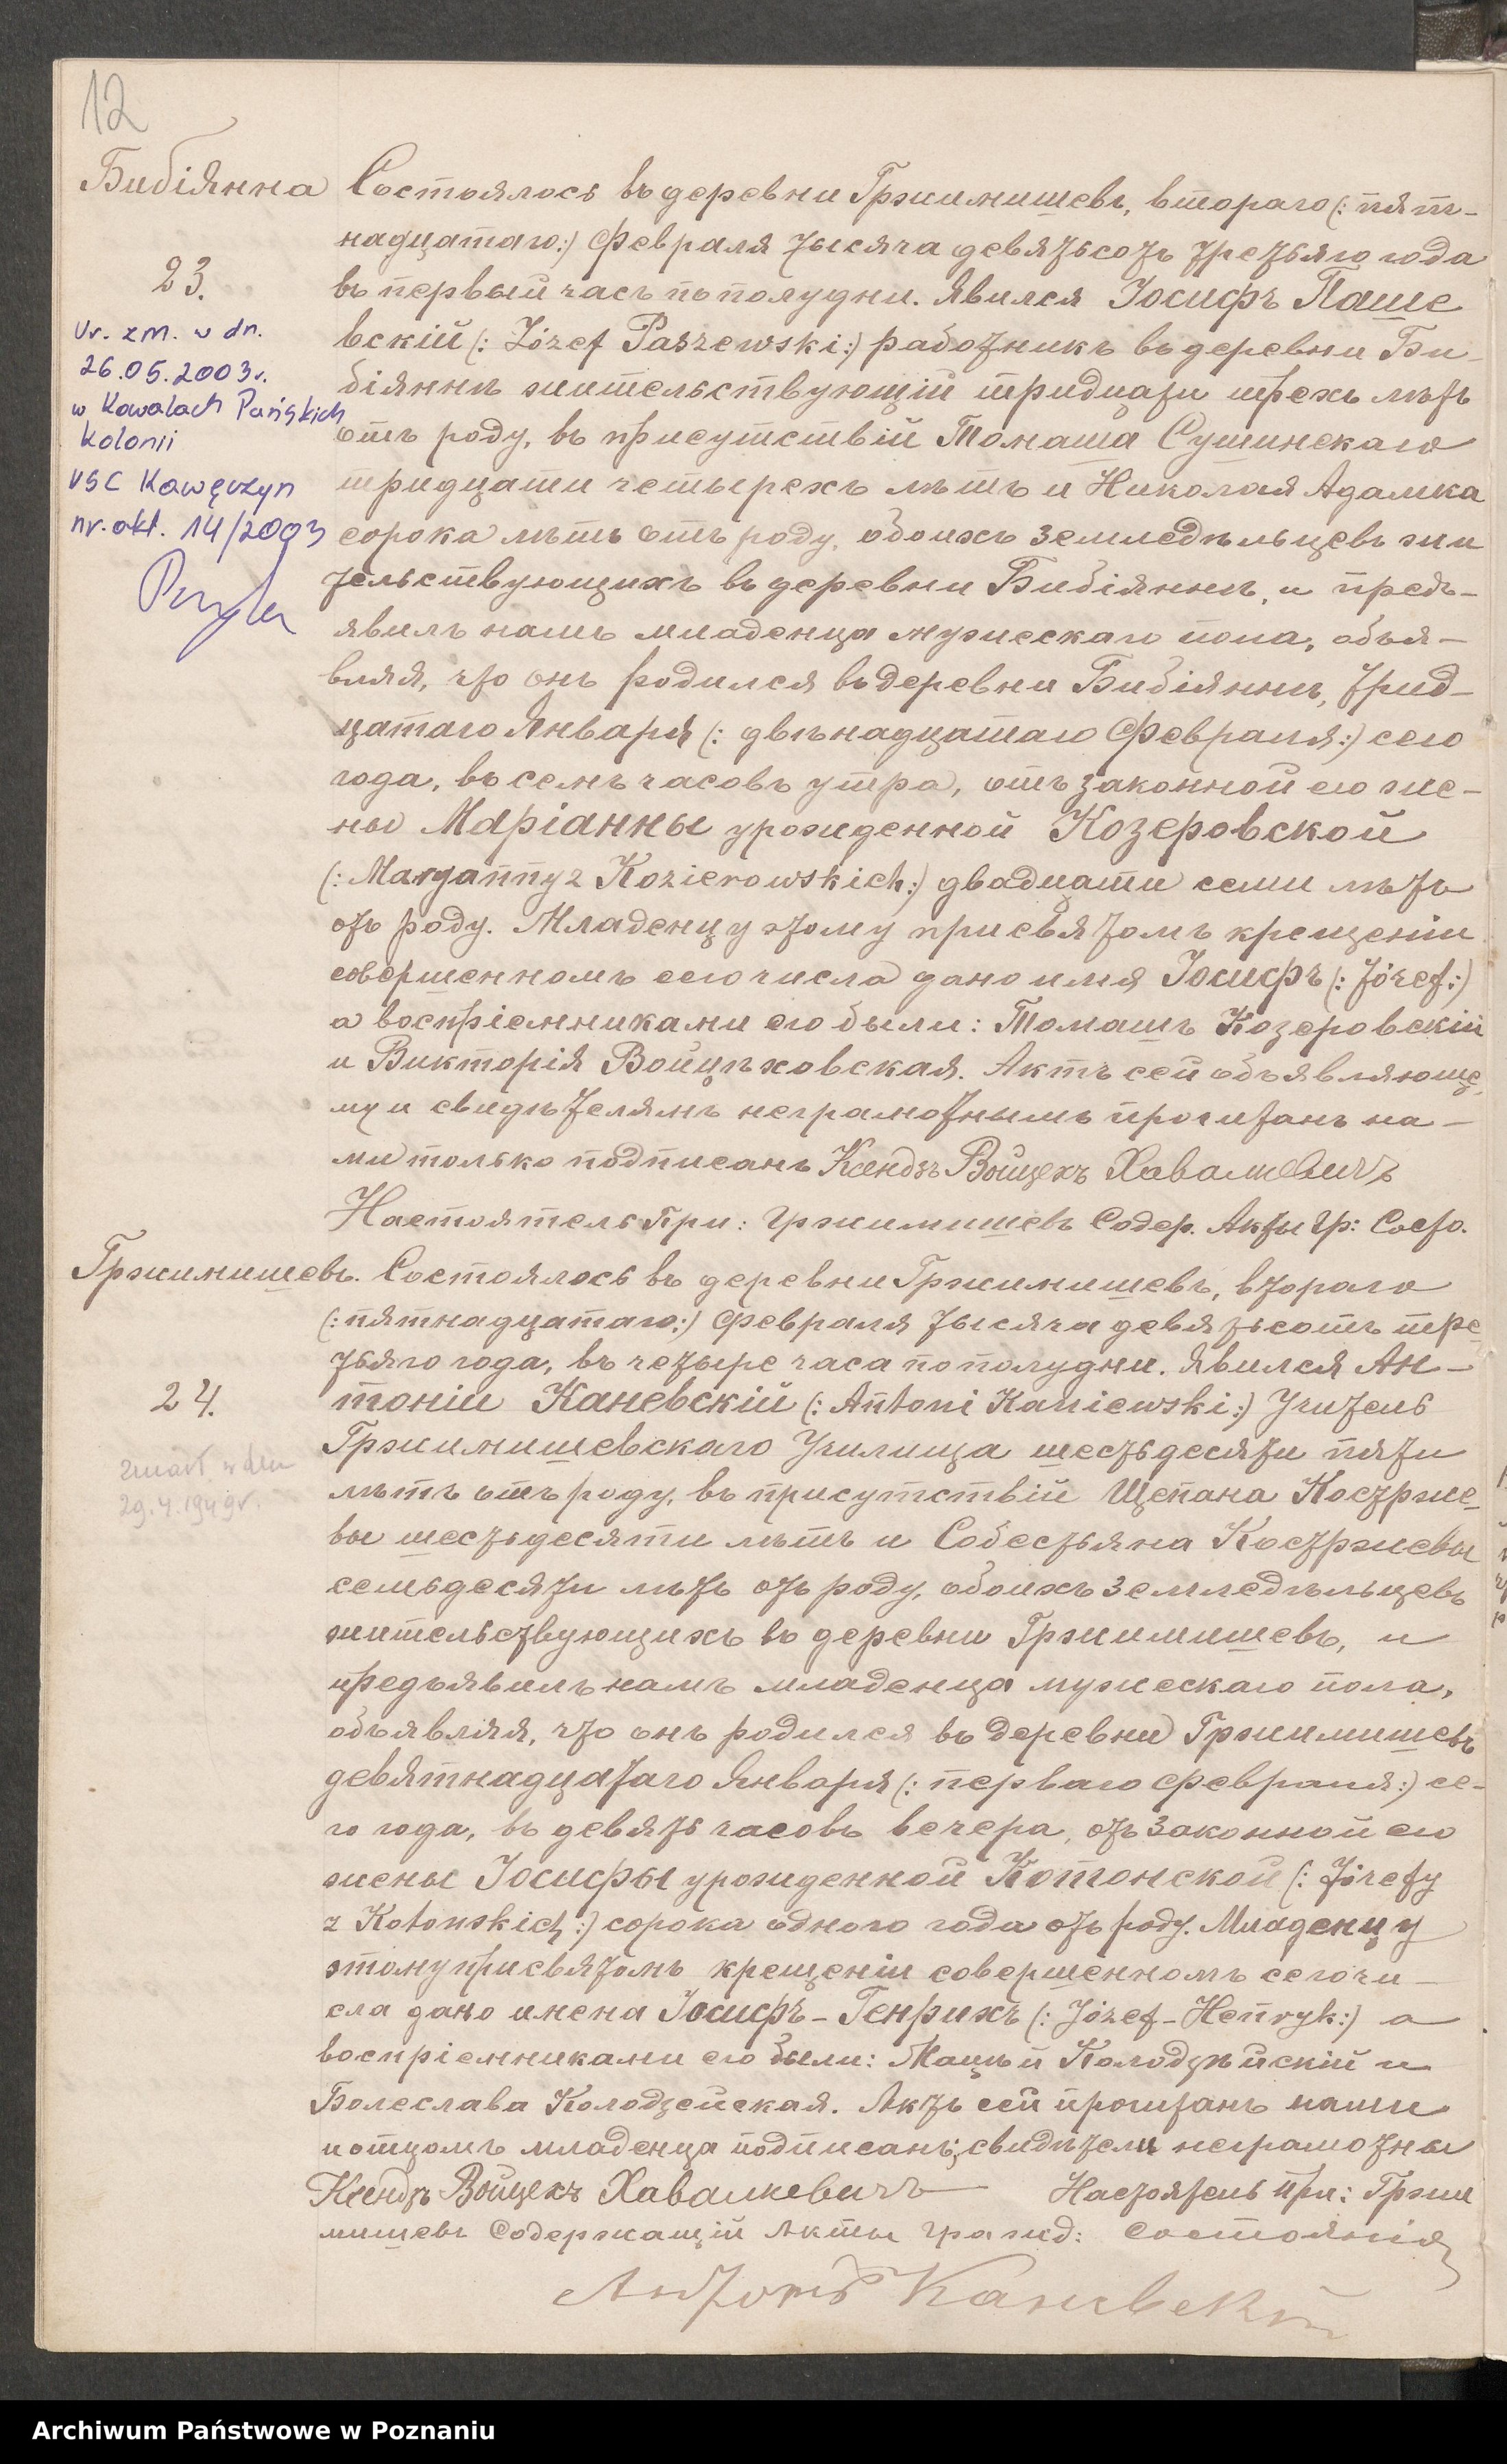 12
Бибіянна
23.
Ur. zm. w dn.
26.05.2003r.
w Kowalach Pańskich
Kolonii
USC Kawęczyn
nr. akt. 14/2003
Состоялось въ деревни Гржимишевъ, втораго (: пят-
надцатаго:) Февраля тысяча девятьсотъ третьяго года
въ первый часъ по полудни. Явился Іосифъ Паше
вскій (: Józef Paszewski:) работникъ въ деревни Би-
біяннъ жительствующій тридцати трехъ лѣтъ
отъ роду, въ присутствій Томаша Сушинскаго
тридцати четырехъ лѣтъ и Николая Адамка
сорока лѣтъ отъ роду, обоихъ земледѣльцевъ жи
тельствующихъ въ деревни Бибіяннъ, и предъ-
явилъ намъ младенца мужескаго пола, объя-
вляя, что онъ родился въ деревни Бибіяннъ, трид-
цатаго Января (: двѣнадцатаго Февраля:) сего
года, въ семь часовъ утра, отъ законной его же-
ны Маріанны урожденной Козеровской
(: Maryanny z Kozierowskich:) двадцати семи лѣтъ
отъ роду. Младенцу этому при святомъ крещеніи
совершенномъ сего числа дано имя Іосифъ (: Józef:)
а воспріемниками его были: Томашъ Козеровскій
и Викторія Войцѣховская. Актъ сей объявляюще
му и свидѣтелямъ неграмотнымъ прочитанъ на-
ми только подписанъ Ксендзъ Войцехъ Хавалкевичъ
Настоятель При: Гржимишевъ Содер. Акты Гр: Состо.
Гржимишевъ.
24.
zmarł w dniu
29.4.1949r.
Состоялось въ деревни Гржимишевъ, втораго
(: пятнадцатаго:) Февраля тысяча девятьсотъ тре
тьяго года, въ четыре часа по полудни. Явился Ан-
тоніи Каневскій (: Antoni Kaniewski:) Учитель
Гржимишевскаго Училища шестьдесяти пяти
лѣтъ отъ роду, въ присутствій Щепана Костржe-
вы шестьдесяти лѣтъ и Собестьяна Костржевы
семьдесяти лѣтъ отъ роду, обоихъ земледѣльцевъ
жительствующихъ въ деревни Гржимишевъ, и
предъявилъ намъ младенца мужескаго пола,
объявляя, что онъ родился въ деревни Гржимишевъ
девятнадцатаго Января (: перваго Февраля:) се-
го года, въ девять часовъ вечера, отъ законной его
жены Іосифы урожденной Котонской (: Józefy
z Kotonskich:) сорока одного года отъ роду. Младенцу
этому при святомъ крещеніи совершенномъ сего чи-
сла дано имена Іосифъ - Генрихъ (: Józef - Henryk:) а
воспріемниками его были: Мацѣй Колодзѣйскій и
Болеслава Колодзейская. Актъ сей прочитанъ нами
и отцомъ младенца подписанъ; свидѣтели неграмотны
Ксендзъ Войцехъ Хавалкевичъ Настоятель При: Гржи
мишевъ Содержащій Акты Гражд: Состоянія
Антоній Каневскій
Archiwum Państwowe w Poznaniu